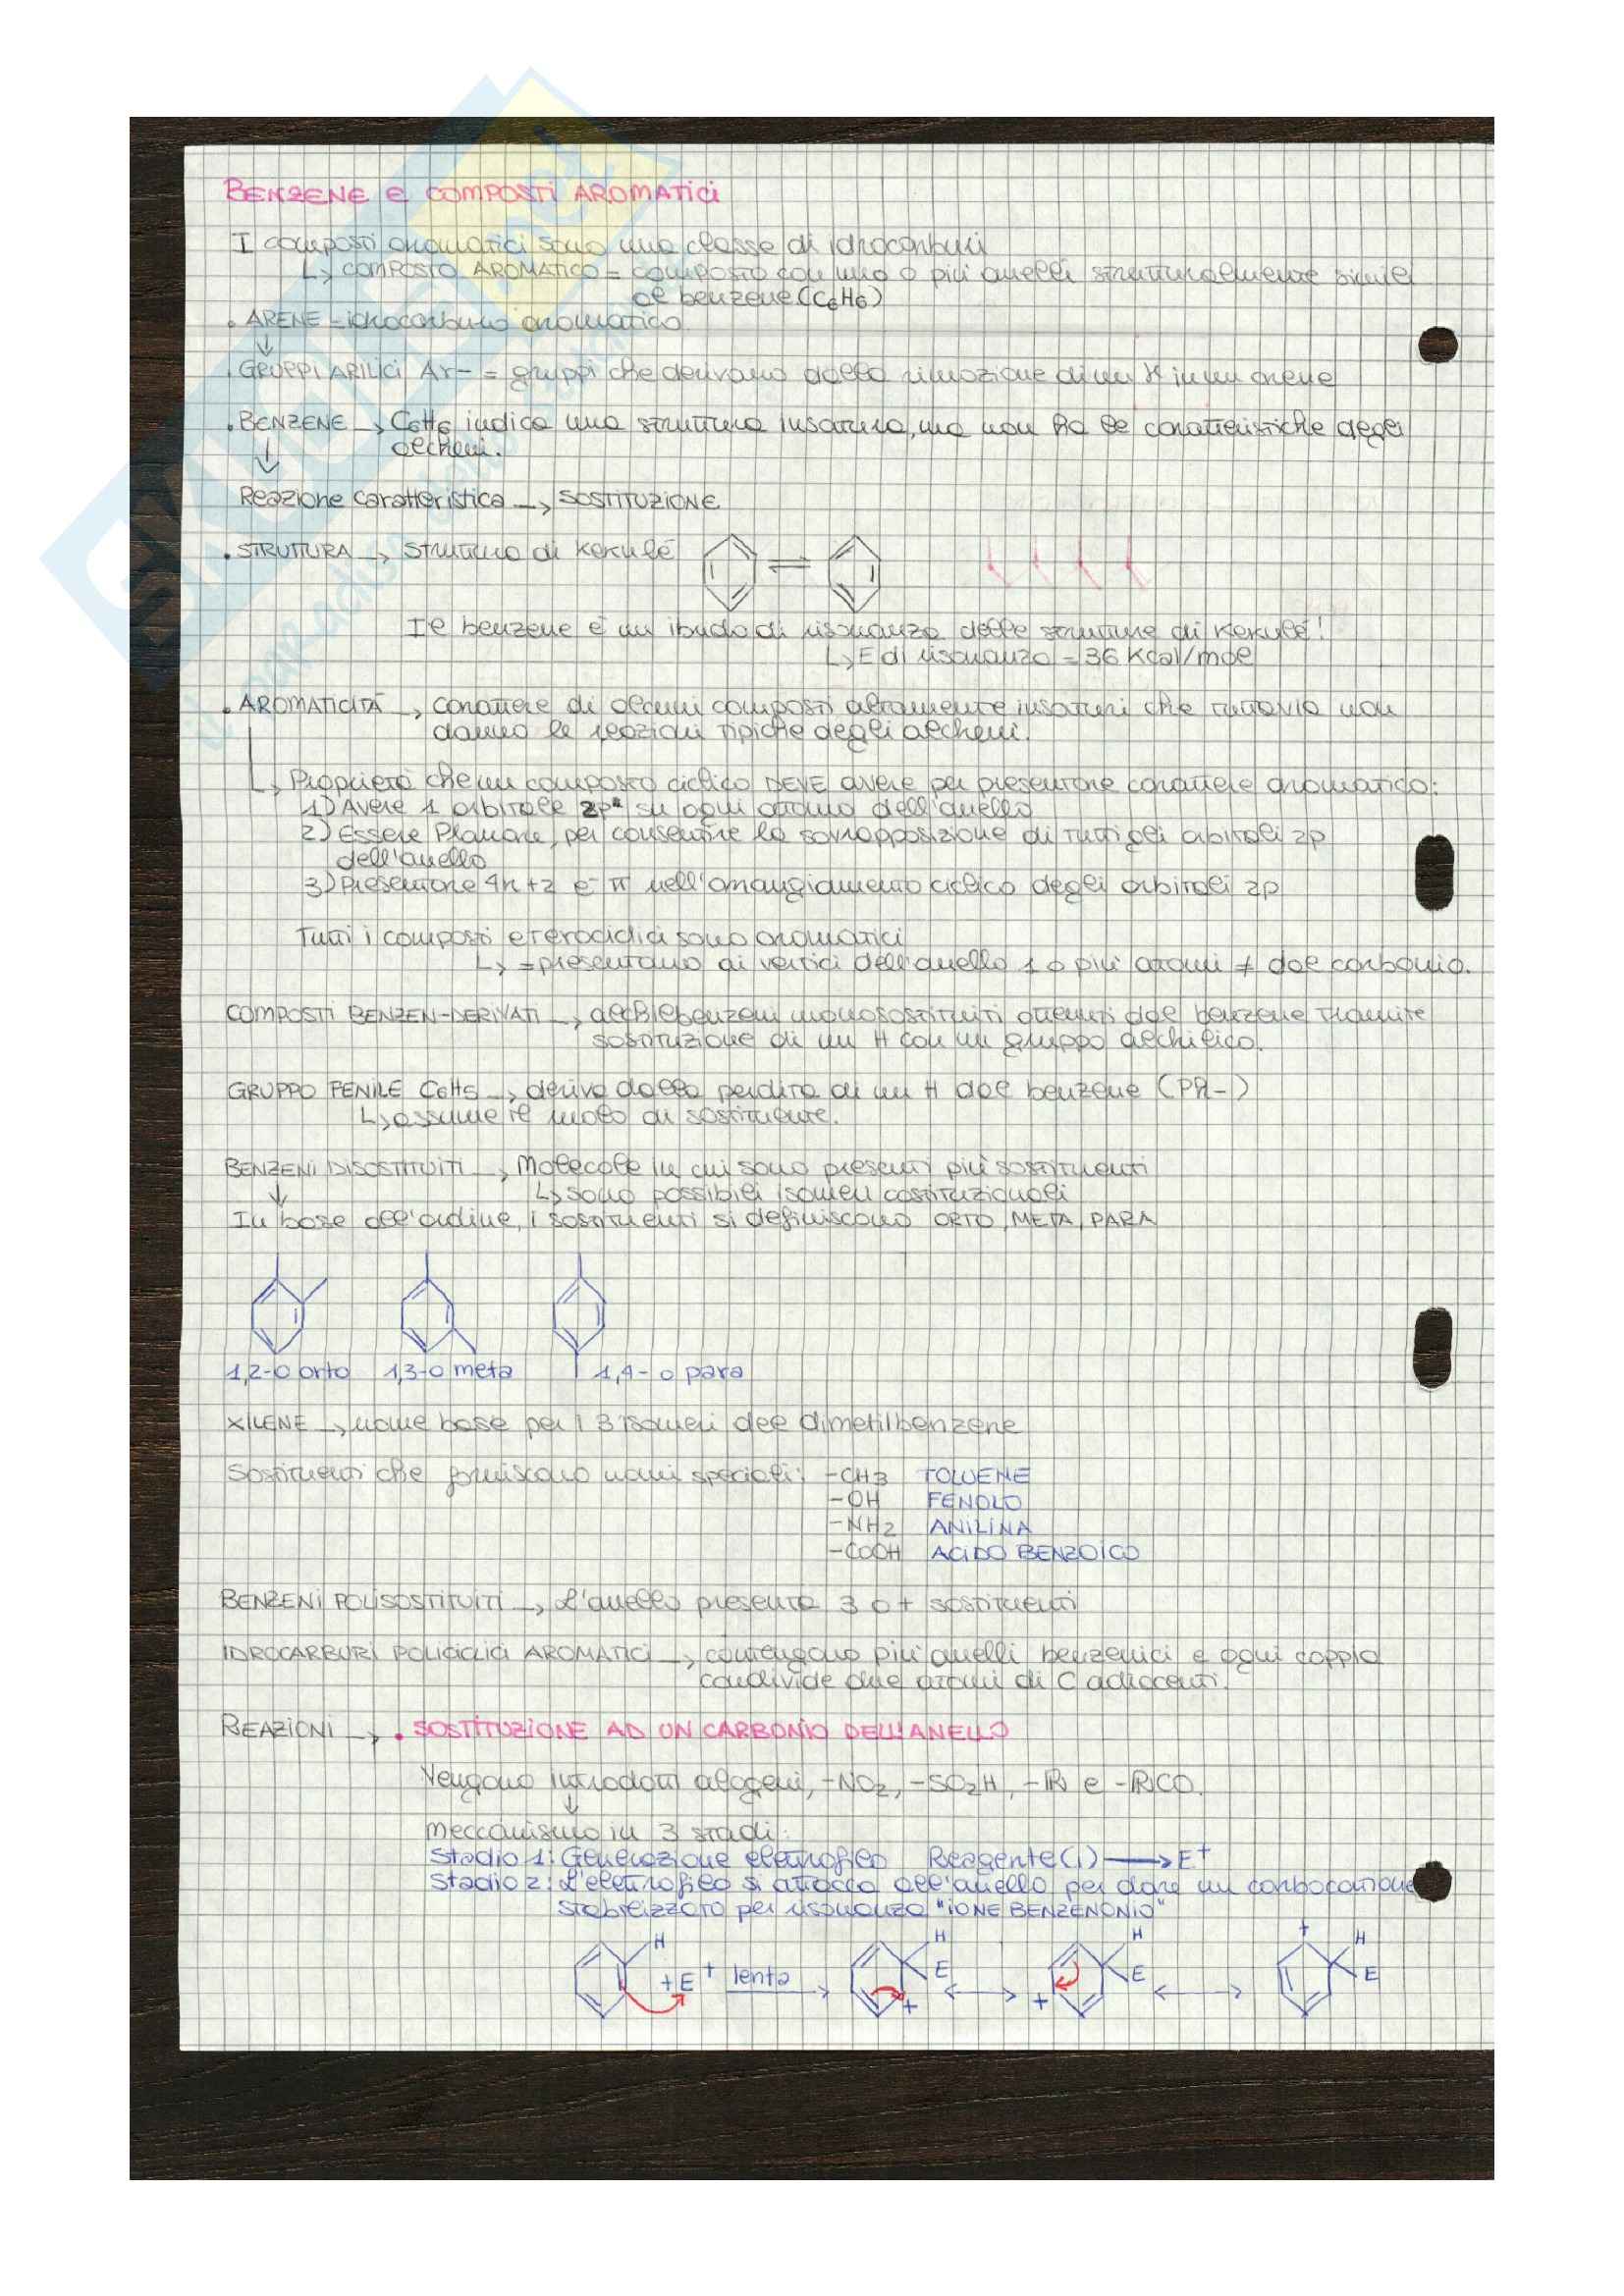 BENZENE E COMPOSTI AROMATICI
I composti aromatici sono una classe di idrocarburi
↳ COMPOSTO AROMATICO = composto con uno o più anelli strutturalmente simile
al benzene (C6H6)
• ARENE - idrocarburo aromatico
↓
• GRUPPI ARILICI Ar- = gruppi che derivano dalla rimozione di un H in un arene
• BENZENE → C6H6 indica una struttura insatura, ma non ha le caratteristiche degli
alcheni.
↓
Reazione caratteristica → SOSTITUZIONE
• STRUTTURA → Struttura di Kekulé
Il benzene è un ibrido di risonanza delle strutture di Kekulé!
↳ E di risonanza = 36 Kcal/mol
• AROMATICITÀ → carattere di alcuni composti altamente insaturi che tuttavia non
danno le reazioni tipiche degli alcheni.
↳ Proprietà che un composto ciclico DEVE avere per presentare carattere aromatico:
1) Avere 1 orbitale 2p su ogni atomo dell'anello
2) Essere Planare, per consentire la sovrapposizione di tutti gli orbitali 2p
dell'anello
3) Presentare 4n+2 e- π nell'arrangiamento ciclico degli orbitali 2p
Tutti i composti eterociclici sono aromatici
↳ = presentano ai vertici dell'anello 1 o più atomi ≠ dal carbonio.
COMPOSTI BENZEN-DERIVATI → alchilbenzeni monosostituiti ottenuti dal benzene tramite
sostituzione di un H con un gruppo alchilico.
GRUPPO FENILE C6H5 → deriva dalla perdita di un H dal benzene (Ph-)
↳ assume il ruolo di sostituente.
BENZENI DISOSTITUITI → Molecole in cui sono presenti più sostituenti
↓ ↳ sono possibili isomeri costituzionali
In base all'ordine, i sostituenti si definiscono ORTO, META, PARA
1,2-o orto 1,3-o meta 1,4-o para
XILENE → nome base per i 3 isomeri del dimetilbenzene
Sostituenti che forniscono nomi speciali: -CH3 TOLUENE
-OH FENOLO
-NH2 ANILINA
-COOH ACIDO BENZOICO
BENZENI POLISOSTITUITI → L'anello presenta 3 o + sostituenti
IDROCARBURI POLICICLICI AROMATICI → contengono più anelli benzenici e ogni coppia
condivide due atomi di C adiacenti.
REAZIONI → • SOSTITUZIONE AD UN CARBONIO DELL'ANELLO
Vengono introdotti alogeni, -NO2, -SO2H, -R e -RCO.
↓
meccanismo in 3 stadi:
Stadio 1: Generazione elettrofilo Reagente(i) ⟶ E+
Stadio 2: L'elettrofilo si attacca all'anello per dare un carbocatione
stabilizzato per risonanza "IONE BENZENONIO"
H +E+ lenta → H E + ↔ H E + ↔ + H E